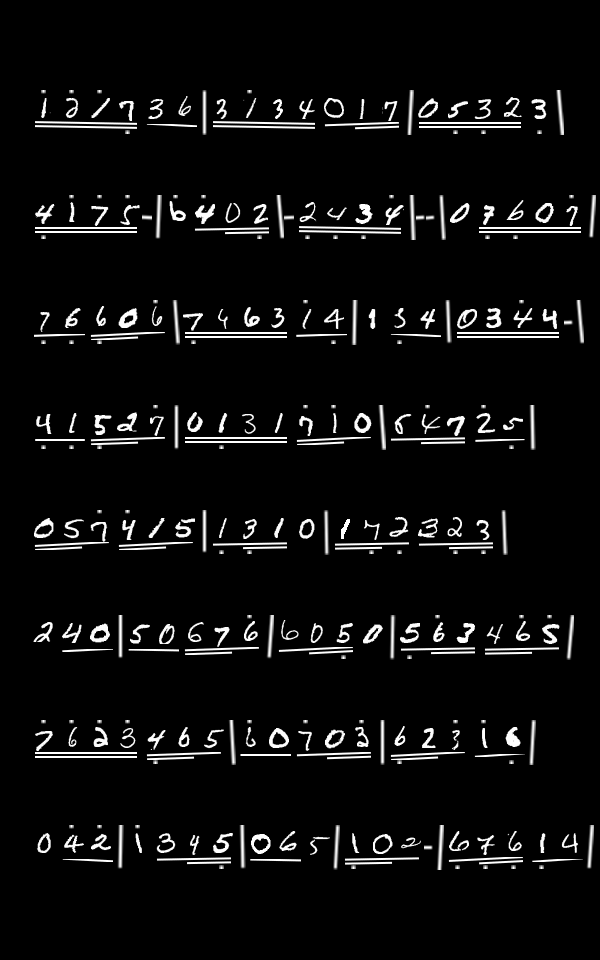 1 2 1 7 3 6 | 3 1 3 4 0 1 7 | 0 5 3 2 3 |
4 1 7 5 - | 6 4 0 2 | - 2 4 3 4 | - - | 0 7 6 0 7 |
7 6 6 0 6 | 7 4 6 3 1 4 | 1 3 4 | 0 3 4 4 - |
4 1 5 2 7 | 0 1 3 1 7 1 0 | 5 4 7 2 5 |
0 5 7 4 1 5 | 1 3 1 0 | 1 7 2 3 2 3 |
2 4 0 | 5 0 6 7 6 | 6 0 5 0 | 5 6 3 4 6 5 |
7 6 2 3 4 6 5 | 6 0 7 0 3 | 6 2 3 1 6 |
0 4 2 | 1 3 4 5 | 0 6 5 | 1 0 2 - | 6 7 6 1 4 |